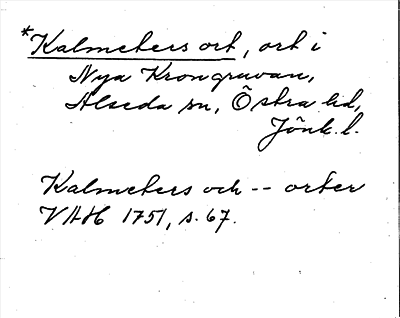 *Kalmeters ort, ort i
Nya Krongruvan,
Alseda sn, Östra hd,
Jönk. l.
Kalmeters och -- orter
VAH 1751, s. 67.